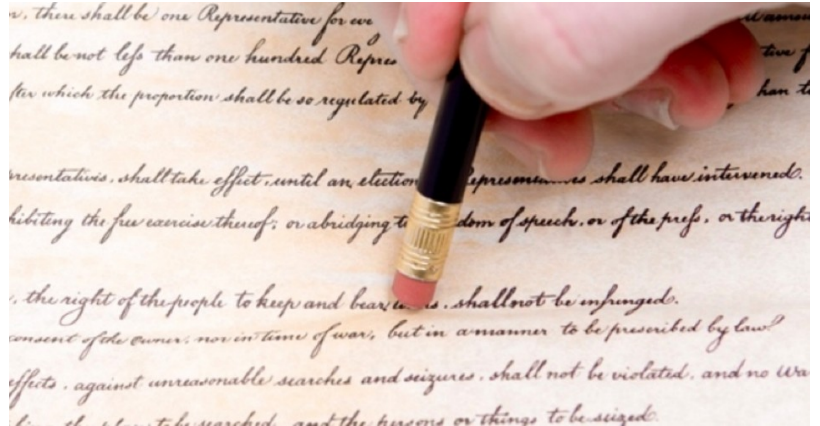 , there shall be one Representative for eve
hall be not less than one hundred Repres tive
fter which the proportion shall be so regulated by han
resentatives, shall take effect, until an election shall have intervened.
hibiting the free exercise thereof; or abridging dom of speech, or of the press, or the right
, the right of the people to keep and bear , shall not be infringed.
consent of the owner, nor in time of war, but in a manner to be prescribed by law.
effects, against unreasonable searches and seizures, shall not be violated, and no Wa
the place to be searched, and the persons or things to be seized.